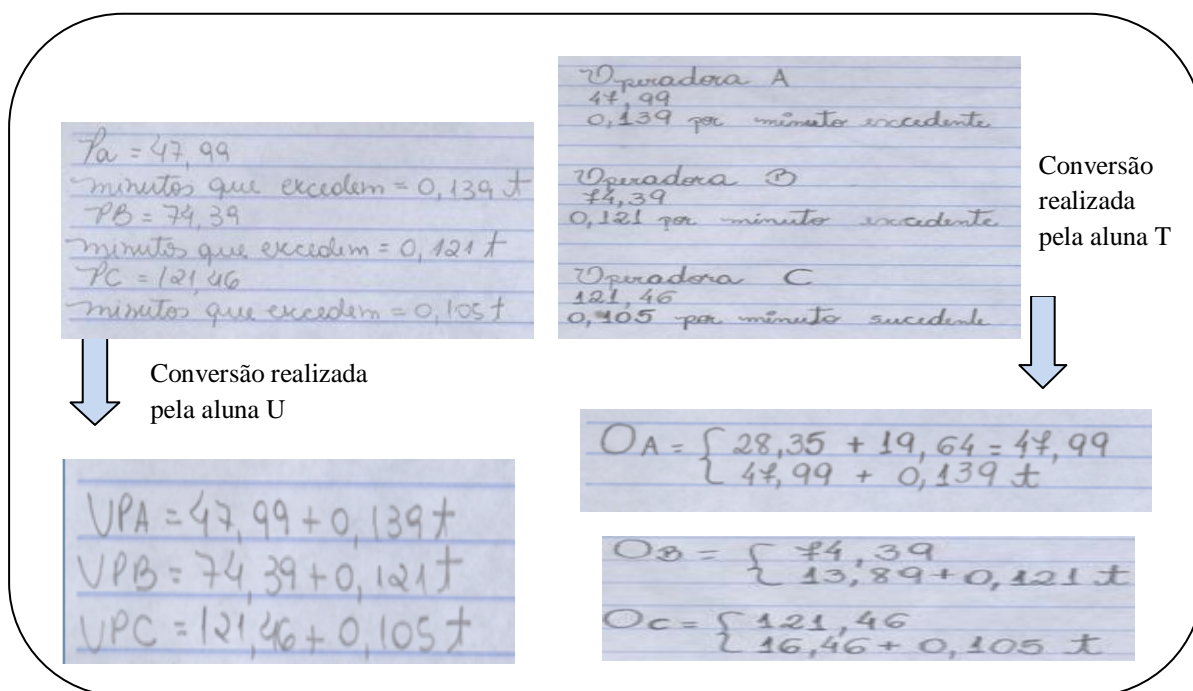 Pa = 47,99
minutos que excedem = 0,139 t
PB = 74,39
minutos que excedem = 0,121 t
PC = 121,46
minutos que excedem = 0,105 t
Conversão realizada
pela aluna U
VPA = 47,99 + 0,139 t
VPB = 74,39 + 0,121 t
VPC = 121,46 + 0,105 t
Operadora A
47,99
0,139 por minuto excedente
Operadora B
74,39
0,121 por minuto excedente
Operadora C
121,46
0,105 por minuto sucedente
Conversão
realizada
pela aluna T
OA = { 28,35 + 19,64 = 47,99
47,99 + 0,139 t
OB = { 74,39
13,89 + 0,121 t
OC = { 121,46
16,46 + 0,105 t